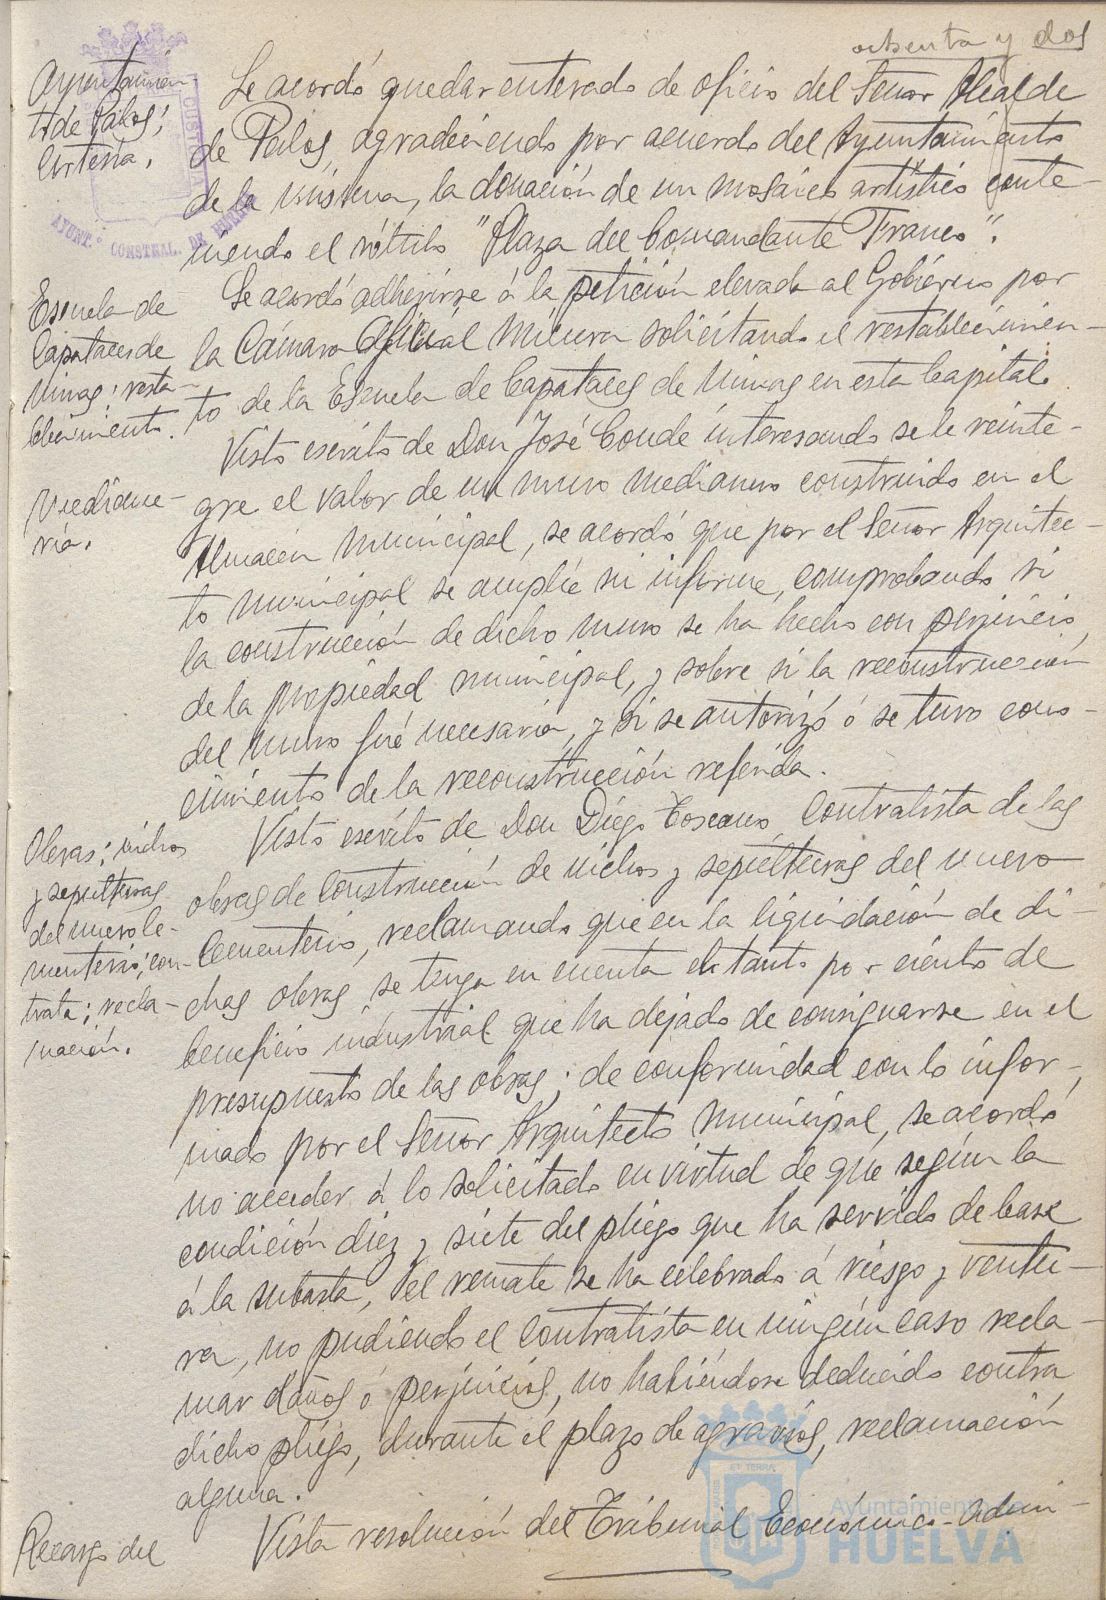 ochenta y dos
Ayuntamien-
to de Palos;
Cortesía.
Se acordó quedar enterado de oficio del Señor Alcalde
de Palos, agradeciendo por acuerdo del Ayuntamiento
de la misma, la donación de un mosaico artístico conte-
niendo el rótulo "Plaza del Comandante Franco".
Escuela de
Capataces de
Minas; resta-
blecimiento.
Se acordó adherirse á la petición elevada al Gobierno por
la Cámara Oficial Minera solicitando el restablecimien-
to de la Escuela de Capataces de Minas en esta Capital.
Mediane-
ría.
Visto escrito de Don José Conde interesando se le reinte-
gre el valor de un muro medianero construido en el
Almacén Municipal, se acordó que por el Señor Arquitec-
to Municipal se amplíe su informe, comprobando si
la construcción de dicho muro se ha hecho con perjuicio
de la propiedad municipal, y sobre si la reconstrucción
del muro fué necesaria, y si se autorizó ó se tuvo cono-
cimiento de la reconstrucción referida.
Obras; nichos
y sepulturas
del nuevo Ce-
menterio; con-
trata; recla-
mación.
Visto escrito de Don Diego Toscano, Contratista de las
obras de construcción de nichos y sepulturas del nuevo
Cementerio, reclamando que en la liquidación de di-
chas obras se tenga en cuenta el tanto por ciento de
beneficio industrial que ha dejado de consignarse en el
presupuesto de las obras; de conformidad con lo infor-
mado por el Señor Arquitecto Municipal, se acordó
no acceder á lo solicitado en virtud de que según la
condición diez y siete del pliego que ha servido de base
á la subasta, el remate se ha celebrado á riesgo y ventu-
ra, no pudiendo el contratista en ningún caso recla-
mar daños ó perjuicios, no habiéndose deducido contra
dicho pliego, durante el plazo de agravios, reclamación
alguna.
Recargo del
Vista resolución del Tribunal Económico-Admi-
AYUNT.º CONSTNAL. DE HUELVA
CUSTODIA
ET TERRÆ
Ayuntamiento de
HUELVA